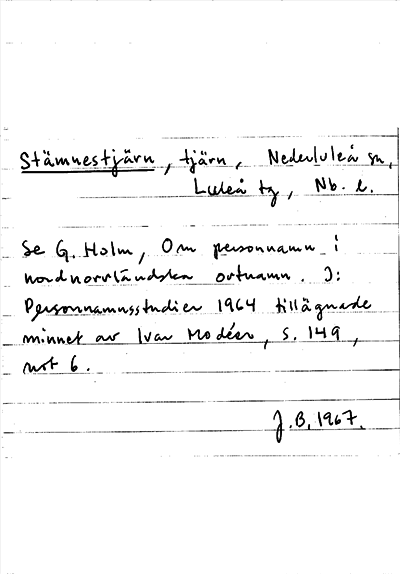 Stämnestjärn, tjärn, Nederluleå sn,
Luleå tg, Nb. l.
Se G. Holm, Om personnamn i
nordnorrländska ortnamn. I:
Personnamnsstudier 1964 tillägnade
minnet av Ivar Modéer, s. 149,
not 6.
J.B. 1967.